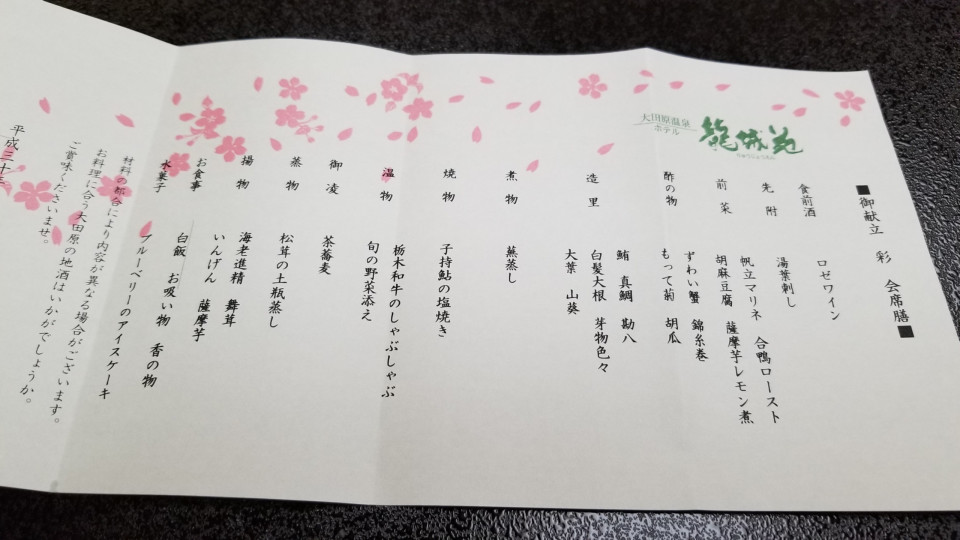 大田原温泉
ホテル
龍城苑
りゅうじょうえん
■御献立 彩 会席膳■
食前酒 ロゼワイン
先附 湯葉刺し
前菜 帆立マリネ 合鴨ロースト
胡麻豆腐 薩摩芋レモン煮
酢の物 ずわい蟹 錦糸巻
もって菊 胡瓜
造里 鮪 真鯛 勘八
白髪大根 芽物色々
大葉 山葵
煮物 蕪蒸し
焼物 子持鮎の塩焼き
温物 栃木和牛のしゃぶしゃぶ
旬の野菜添え
御凌 茶蕎麦
蒸物 松茸の土瓶蒸し
揚物 海老進精 舞茸
いんげん 薩摩芋
お食事 白飯 お吸い物 香の物
水菓子 ブルーベリーのアイスケーキ
材料の都合により内容が異なる場合がございます。
お料理に合う大田原の地酒はいかがでしょうか。
ご賞味くださいませ。
平成三十